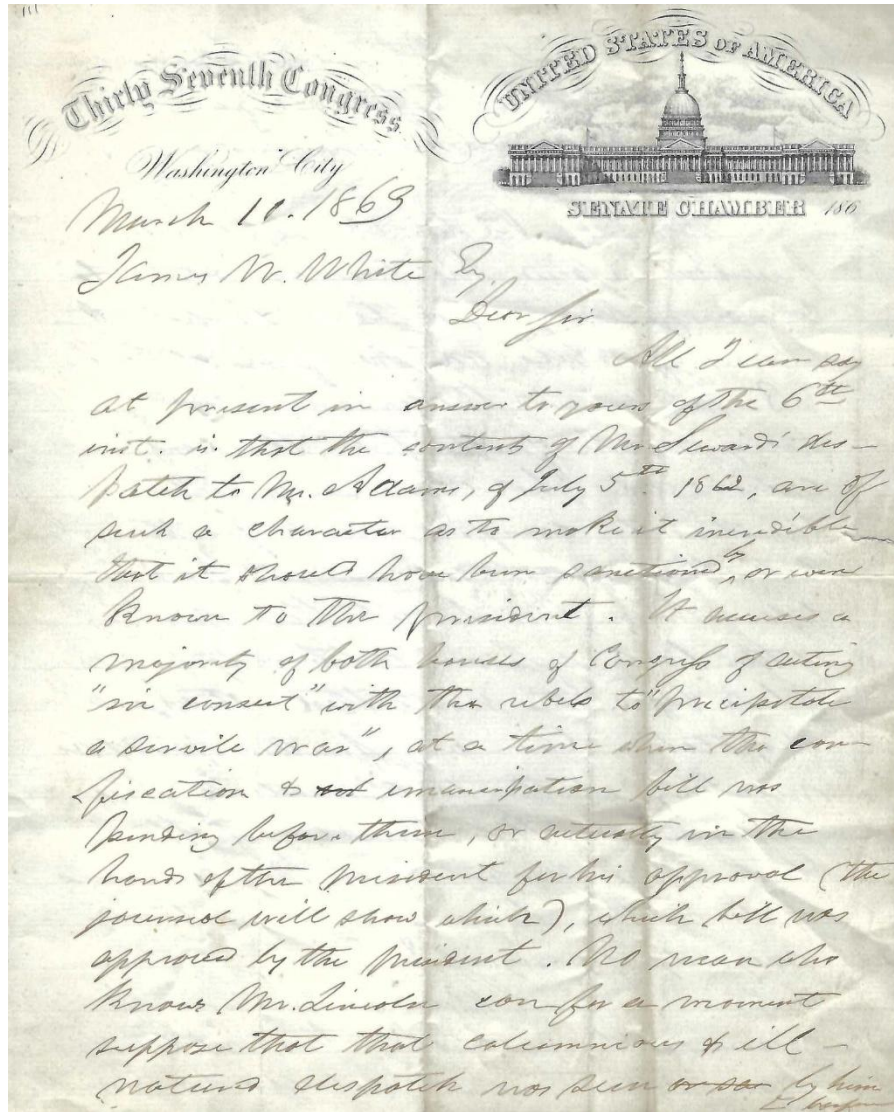 Thirty Seventh Congress
Washington City
UNITED STATES OF AMERICA
SENATE CHAMBER 186
March 10. 1863
James W. White Esq.
Dear Sir
All I can say
at present in answer to yours of the 6th
inst. is that the contents of Mr Seward's des-
patch to Mr. Adams, of July 5th 1862, are of
such a character as to make it incredible
that it should have been sanctioned by, or even
known to the president. It accuses a
majority of both houses of Congress of acting
"in concert" with the rebels to "precipitate
a servile war", at a time when the con-
fiscation & emancipation bill was
pending before them, or actually in the
hands of the president for his approval (the
journal will show which), which bill was
approved by the president. No man who
knows Mr. Lincoln can for a moment
suppose that that calumnious & ill-
natured despatch was seen or by him